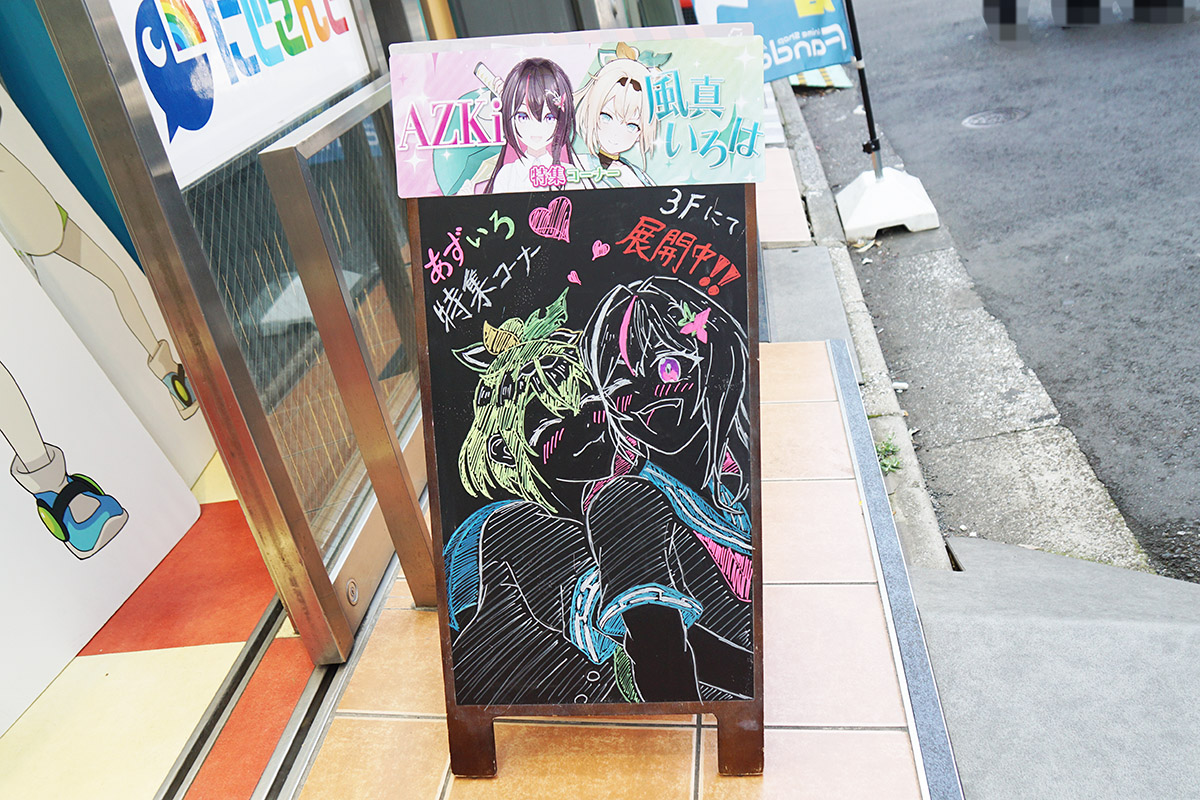 にじさんじ
AZKi
風真
いろは
特集コーナー
あずいろ
特集コーナー
3Fにて
展開中!!